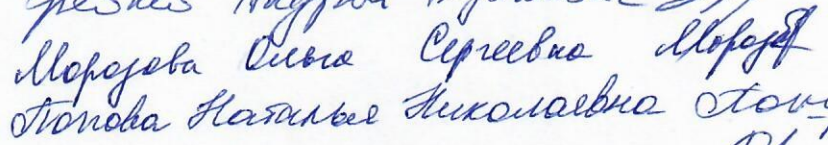 Андрей
Морозова Ольга Сергеевна Мороз
Попова Наталья Николаевна Поп